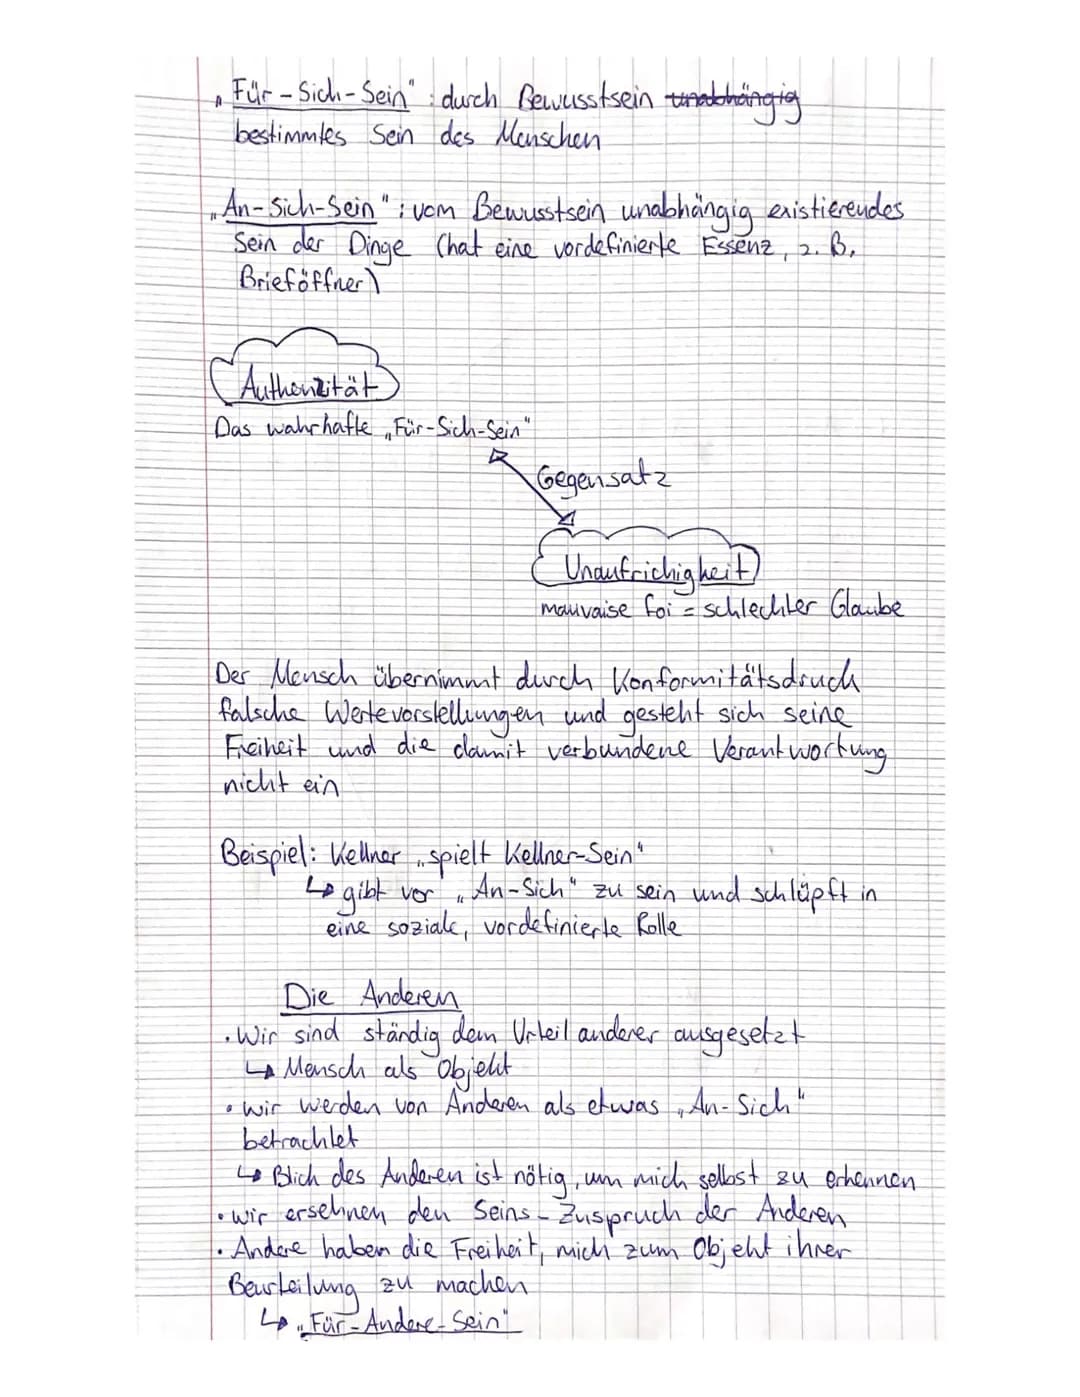 „Für-Sich-Sein": durch Bewusstsein unabhängig
bestimmtes Sein des Menschen
„An-Sich-Sein": vom Bewusstsein unabhängig existierendes
Sein der Dinge (hat eine vordefinierte Essenz, z. B.
Brieföffner)
Authenzität
Das wahrhafte „Für-Sich-Sein"
Gegensatz
Unaufrichigkeit
mauvaise foi = schlechter Glaube
Der Mensch übernimmt durch Konformitätsdruck
falsche Wertevorstellungen und gesteht sich seine
Freiheit und die damit verbundene Verantwortung
nicht ein
Beispiel: Kellner „spielt Kellner-Sein"
↳ gibt vor „An-Sich" zu sein und schlüpft in
eine soziale, vordefinierte Rolle
Die Anderen
• Wir sind ständig dem Urteil anderer ausgesetzt
↳ Mensch als Objekt
• wir werden von Anderen als etwas „An-Sich"
betrachtet
↳ Blick des Anderen ist nötig, um mich selbst zu erkennen
• wir ersehnen den Seins-Zuspruch der Anderen
• Andere haben die Freiheit, mich zum Objekt ihrer
Beurteilung zu machen
↳ „Für-Andere-Sein"